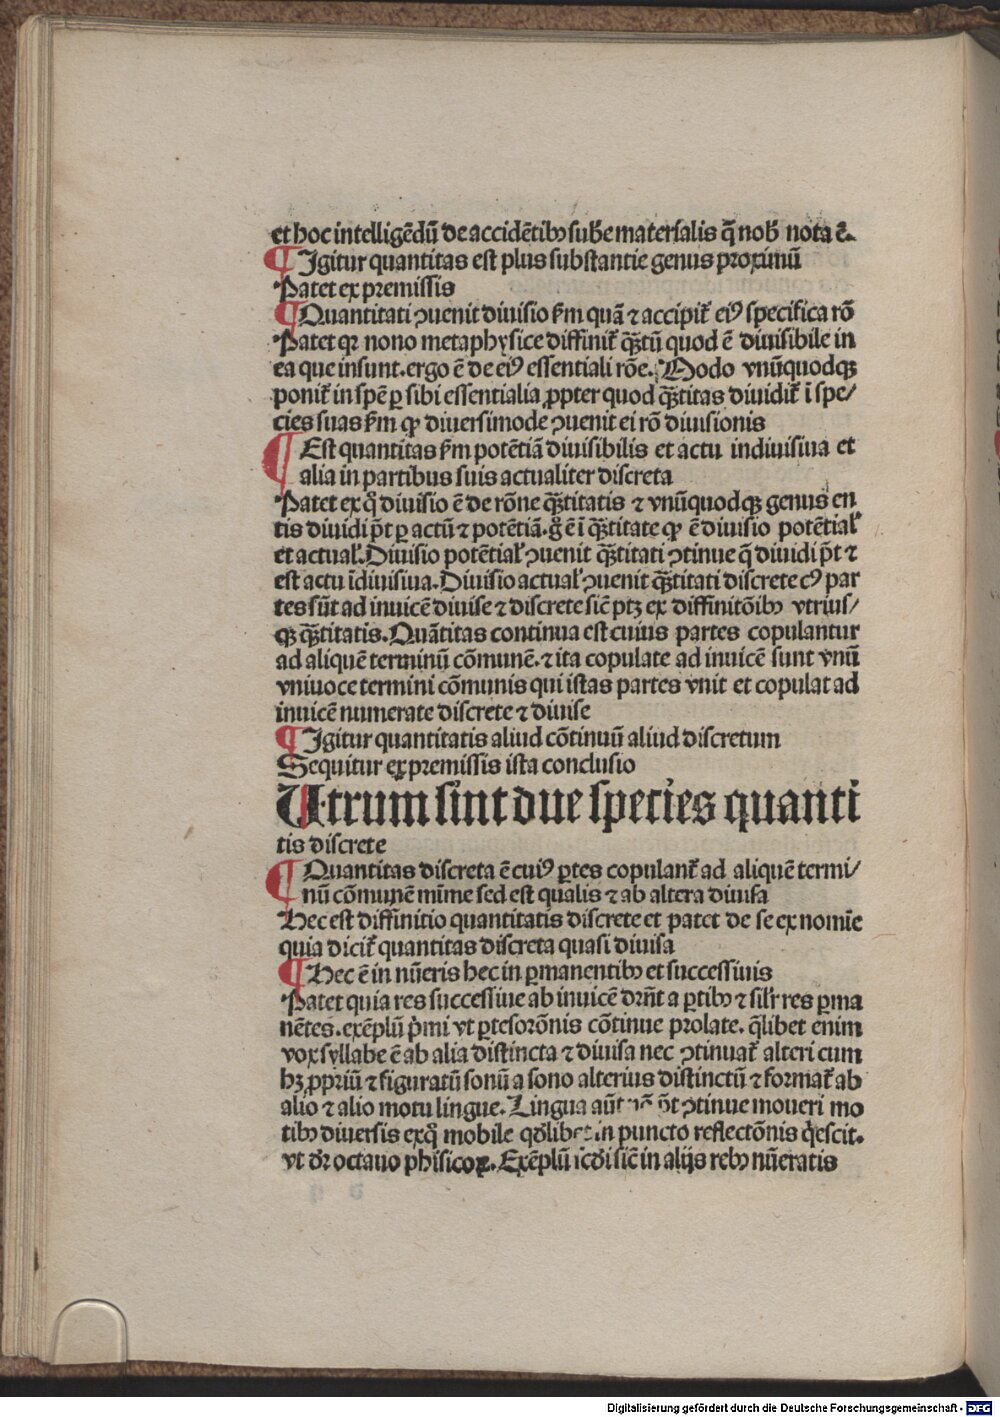 et hoc intelligēdū de accidētibꝫ sub̄e materialis q̄ nob̄ nota ē.
¶ Igitur quantitas est plus substantie genus proximū
Patet ex premissis
¶ Quantitati ꝯuenit diuisio ẜm quā ⁊ accipit᷑ eiꝰ specifica rō
Patet qꝛ nono metaphysice diffinit᷑ q̄ꝫtū quod ē diuisibile in
ea que insunt. ergo ē de eiꝰ essentiali rōe. Modo vnūquodqꝫ
ponit᷑ in spē ꝑ sibi essentialia ꝓpter quod q̄ꝫtitas diuidit᷑ ī spe/
cies suas ẜm ꝙ diuersimode ꝯuenit ei rō diuisionis
¶ Est quantitas ẜm potētiā diuisibilis et actu indiuisiua et
alia in partibus suis actualiter discreta
Patet ex q̊ diuisio ē de rōne q̄ꝫtitatis ⁊ vnūquodqꝫ genus en
tis diuidi pōt ꝑ actū ⁊ potētiā. g̊ ē ī q̄ꝫtitate ꝙ ē diuisio potētial᷑
et actual᷑. Diuisio potētial᷑ ꝯuenit q̄ꝫtitati ꝯtinue q̄ diuidi pōt ⁊
est actu īdiuisiua. Diuisio actual᷑ ꝯuenit q̄ꝫtitati discrete cꝰ par
tes sūt ad inuicē diuise ⁊ discrete sic̄ ptꝫ ex diffinitōibꝫ vtrius/
qꝫ q̄ꝫtitatis. Quātitas continua est cuius partes copulantur
ad aliquē terminū cōmunē. ⁊ ita copulate ad inuicē sunt vnū
vniuoce termini cōmunis qui istas partes vnit et copulat ad
inuicē numerate discrete ⁊ diuise
¶ Igitur quantitatis aliud cōtinuū aliud discretum
Sequitur ex premissis ista conclusio
Utrum sint due species quanti
tis discrete
¶ Quantitas discreta ē cuiꝰ ꝑtes copulant᷑ ad aliquē termi/
nū cōmunem mīme sed est qualis ⁊ ab altera diuisa
Hec est diffinitio quantitatis discrete et patet de se ex nomīe
quia dicit᷑ quantitas discreta quasi diuisa
¶ Hec ē in nūeris hec in ꝑmanentibꝫ et successiuis
Patet quia res successiue ab inuicē drn̄t a ꝑtibꝫ ⁊ silr᷑ res ꝑma
nētes. exēplū pͥmi vt ꝑtes orōnis cōtinue prolate. q̄libet enim
vox syllabe ē ab alia distincta ⁊ diuisa nec ꝯtinuat᷑ alteri cum
hꝫ ꝓpriū ⁊ figuratū sonū a sono alterius distinctū ⁊ format᷑ ab
alio ⁊ alio motu lingue. Lingua aūt pōt ꝯtinue moueri mo
tibꝫ diuersis ex q̊ mobile qd̄libet in puncto reflectōnis qͥescit.
vt dr̄ octauo phisicoꝝ. Exēplū scd̄i sic̄ in alijs rebꝫ nūeratis
Digitalisierung gefördert durch die Deutsche Forschungsgemeinschaft - DFG